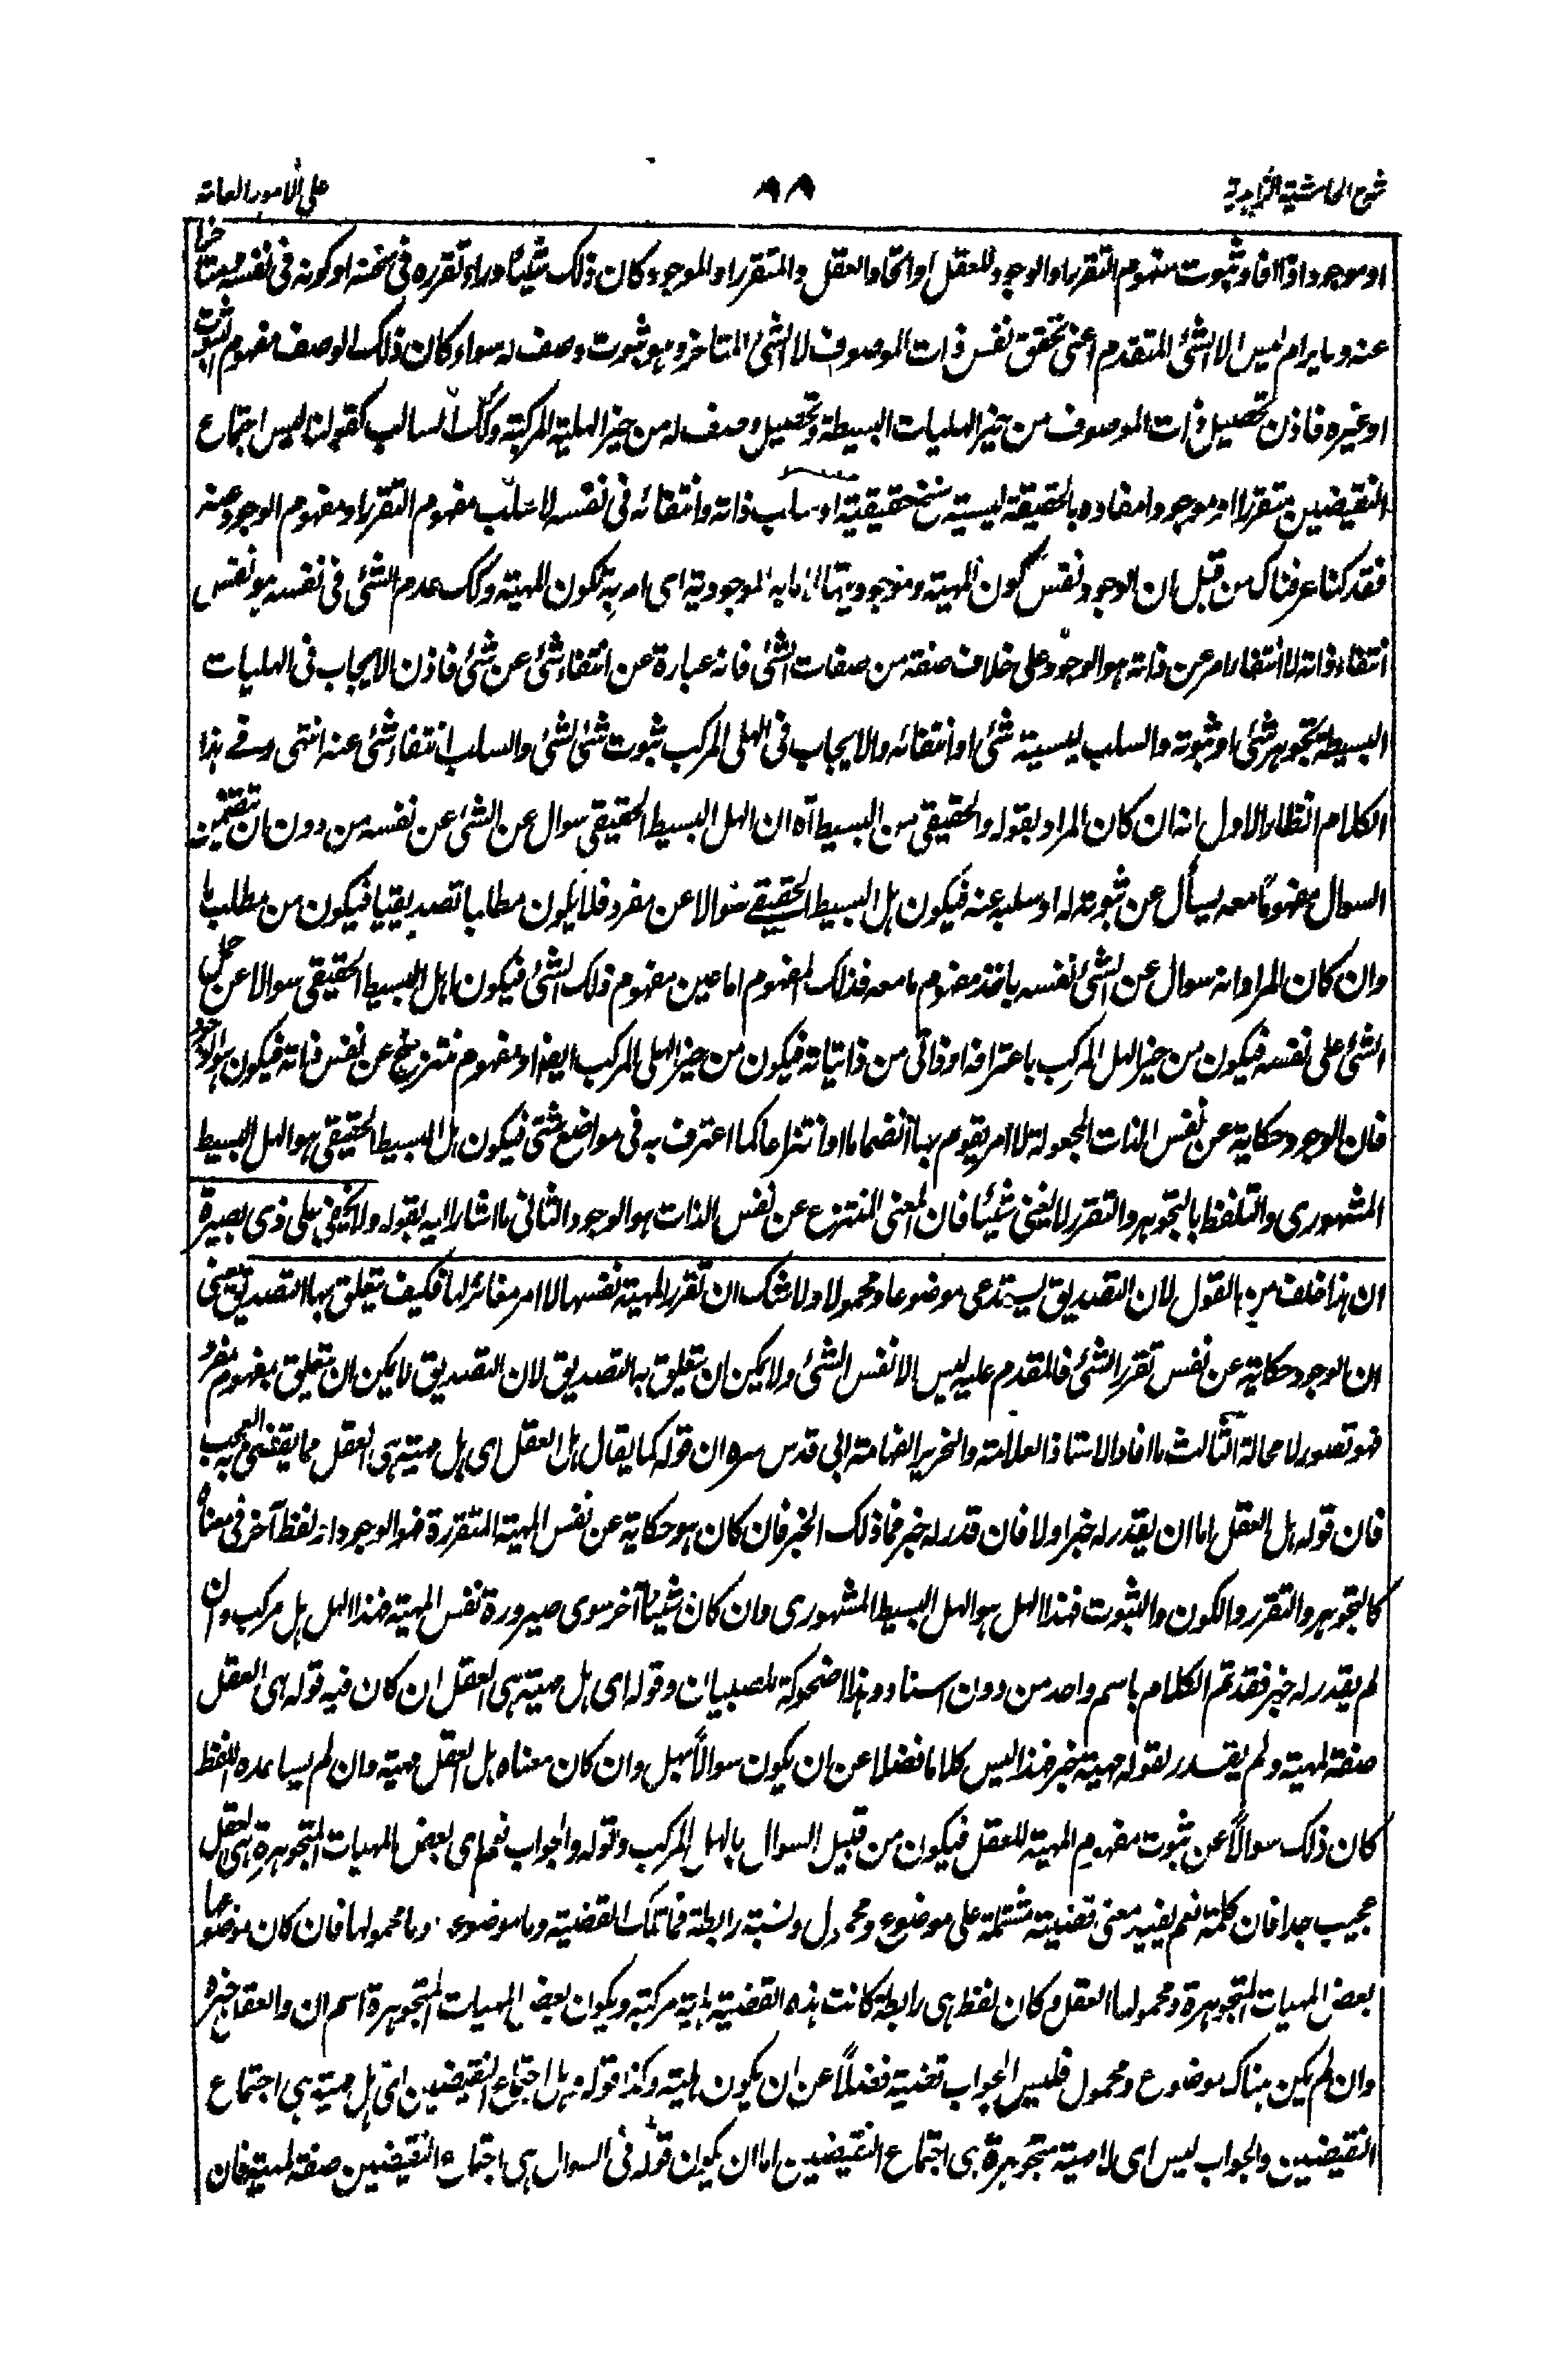 شرح الحاشية الزاهدية ٨٨ على الامور العامة
او موجود اذا افاد ثبوت مفهوم التقرر او الوجود للعقل او اتحاد العقل والمتقرر او الموجود كان ذلك شيئا وراء تقرره في سنخه او كونه في نفسه متأخرا
عنه وما يرام ليس الا الشئ المتقدم اعنى تحقق نفس ذات الموصوف لا الشئ المتاخر وهو ثبوت وصف له سواء كان ذلك الوصف مفهوم الثبوت
او غيره فاذن تحصيل ذات الموصوف من حيز الهليات البسيطة وتحصيل وصف له من حيز الهلية المركبة وكك السالب كقولنا ليس اجتماع
النقيضين متقررا او موجودا مفاده بالحقيقة ليسية سنخ حقيقية او سلب ذاته وانتفائه في نفسه لا سلب مفهوم التقرر او مفهوم الوجود عنه
فقد كنا عرفناك من قبل ان الوجود نفس كون المهية وموجوديتها لا ما به الموجودية اى امر به تكون المهية وكك عدم الشئ في نفسه هو نفس
انتفاء ذاته لا انتفاء امر عن ذاته هو الوجود على خلاف صفة من صفات الشئ فانه عبارة عن انتفاء شئ عن شئ فاذن الايجاب في الهليات
البسيطة تجوهر شئ او ثبوته والسلب ليسية شئ او انتفائه والايجاب في الهلى المركب ثبوت شئ لشئ والسلب انتفاء شئ عنه انتهى وفي هذا
الكلام انظار الاول انه ان كان المراد بقوله والحقيقي من البسيط آه ان الهل البسيط الحقيقي سوال عن الشئ عن نفسه من دون ان تضمينه
السوال مفهوما معه يسأل عن ثبوته له او سلبه عنه فيكون هل البسيط الحقيقي سوالا عن مفرد فلا يكون مطلبا تصديقيا فيكون من مطلب ما
وان كان المراد انه سوال عن الشئ نفسه باخذ مفهوم ما معه فذلك المفهوم اما عين مفهوم ذلك الشئ فيكون الهل البسيط الحقيقي سوالا عن حمل
الشئ على نفسه فيكون من حيز الهل المركب باعترافه او ذاتى من ذاتياته فيكون من حيز الهلى المركب ايضا او مفهوم منتزع عن نفس ذاته فيكون هو الوجود
فان الوجود حكاية عن نفس الذات المجعولة لا امر يقوم بها انضماما او انتزاعا كما اعترف به في مواضع شتى فيكون هل البسيط الحقيقي هو الهل البسيط
المشهورى والتلفظ بالتجوهر والتقرر لا يغنى شيئا فان المعنى المنتزع عن نفس الذات هو الوجود الثانى ما اشار اليه بقوله ولا يخفى على ذى بصيرة
ان هذا خلف من القول لان التصديق يستدعى موضوعا ومحمولا ولا شك ان تقرر المهية نفسها لا امر مغائر لها فكيف يتعلق بها التصديق يعنى
ان الوجود حكاية عن نفس تقرر الشئ فالمقدم عليه ليس الا نفس الشئ ولا يمكن ان يتعلق به التصديق لان التصديق لا يمكن ان يتعلق بمفهوم مفرد
فهو تصور لا محالة الثالث ما افاد الاستاذ العلامة والنحرير الفهامة ابى قدس سره ان قوله كما يقال هل العقل اى هل مهية هى العقل مما يقضى به العجب
فان قوله هل العقل اما ان يقدر له خبر او لا فان قدر له خبر فما ذلك الخبر فان كان هو حكاية عن نفس المهية المتقررة فهو الوجود او لفظ آخر في معناه
كالتجوهر والتقرر والكون والثبوت فهذا الهل هو الهل البسيط المشهورى وان كان شيئا آخر سوى صيرورة نفس المهية فهذا الهل هل مركب وان
لم يقدر له خبر فقد تم الكلام باسم واحد من دون اسناد وهذا اضحوكة للصبيان وقوله اى هل مهية هى العقل ان كان فيه قوله هى العقل
صفة لمهية ولم يقدر لقوله مهية خبر فهذا ليس كلاما فضلا عن ان يكون سوالاً بهل وان كان معناه هل العقل مهية وان لم يساعده اللفظ
كان ذلك سوالاً عن ثبوت مفهوم المهية للعقل فيكون من قبيل السوال بالهل المركب وقوله والجواب نعم اى بعض المهيات المتجوهرة هى العقل
عجيب جدا فان كلمة نعم يفيد معنى قضية مشتملة على موضوع ومحمول ونسبة رابطة فما تلك القضية وما موضوعها وما محمولها فان كان موضوعها
بعض المهيات المتجوهرة ومحمولها العقل وكان لفظ هى رابطة كانت هذه القضية هلية مركبة ويكون بعض المهيات المتجوهرة اسم ان والعقل خبره
وان لم يكن هناك موضوع ومحمول فليس الجواب قضية فضلاً عن ان يكون هلية وكذا قوله هل اجتماع النقيضين اى هل مهية هى اجتماع
النقيضين والجواب ليس اى لا مهية متجوهرة هى اجتماع النقيضين اما ان يكون قوله في السوال هى اجتماع النقيضين صفة لمهية فان